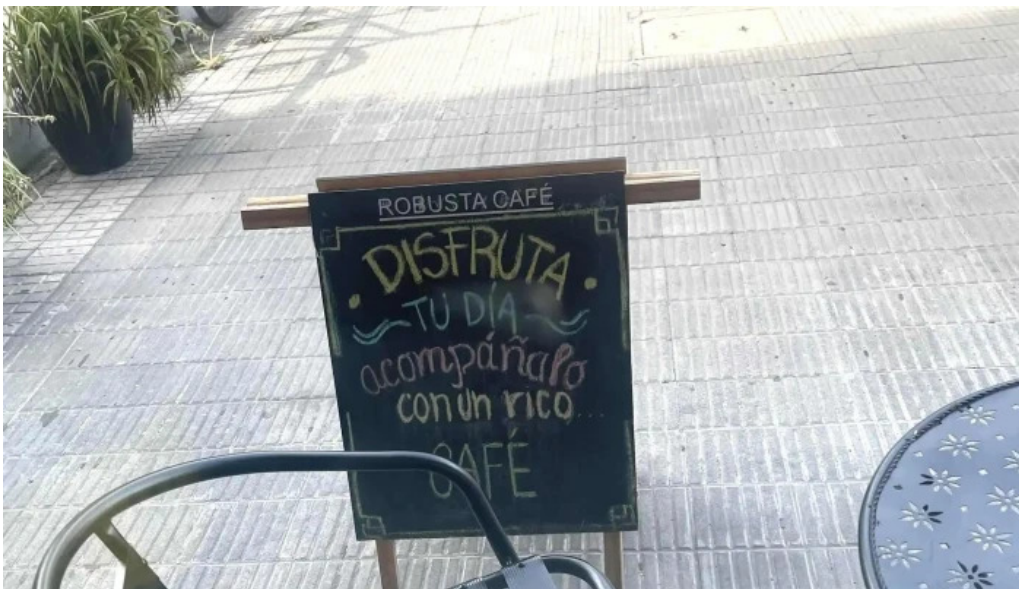 ROBUSTA CAFÉ
DISFRUTA
TU DÍA
acompáñalo
con un rico...
CAFÉ